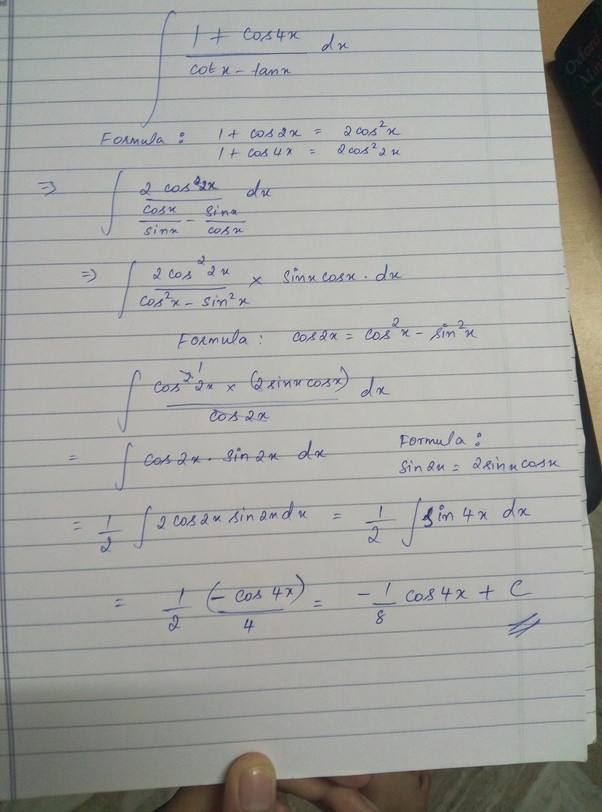 ∫ (1 + cos4x)/(cotx - tanx) dx
Formula : 1 + cos2x = 2cos²x
1 + cos4x = 2cos²2x
⇒ ∫ (2 cos²2x)/(cosx/sinx - sinx/cosx) dx
⇒ ∫ (2cos²2x)/(cos²x - sin²x) × sinx cosx . dx
Formula : cos2x = cos²x - sin²x
∫ (cos²2x × (2sinxcosx))/(cos2x) dx
= ∫ cos2x . sin2x dx
Formula :
sin2x = 2sinxcosx
= 1/2 ∫ 2cos2x sin2xdx = 1/2 ∫ sin4x dx
= 1/2 (-cos4x)/4 = -1/8 cos4x + C
Oxford